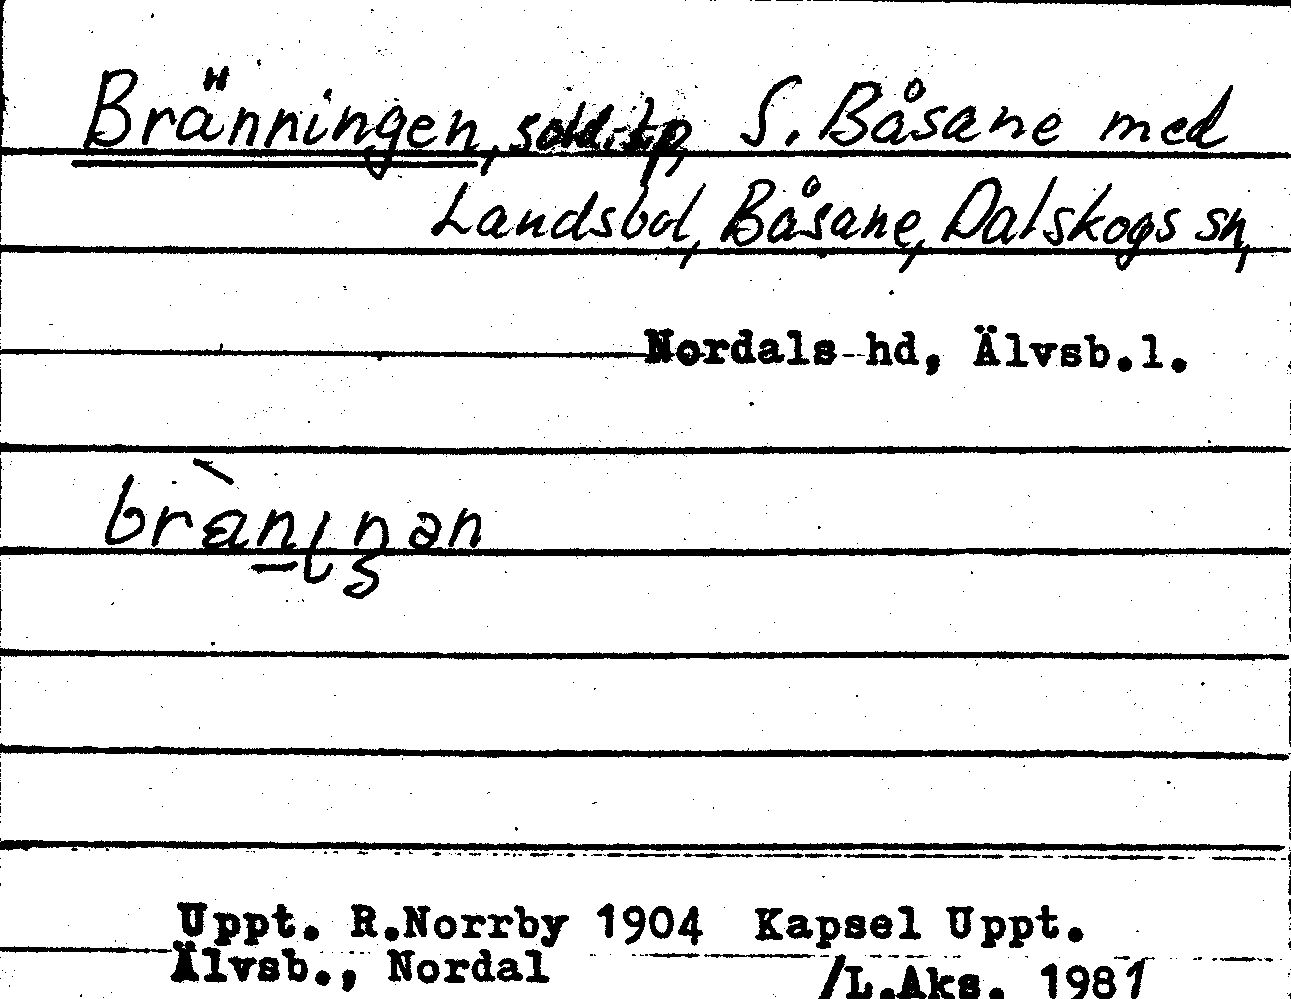 Bränningen, sold.tp, S. Båsane med
Landsbol, Båsane, Dalskogs sn,
Nordals hd, Älvsb.l.
Uppt. R.Norrby 1904 Kapsel Uppt.
Älvsb., Nordal /L.Aks. 1981